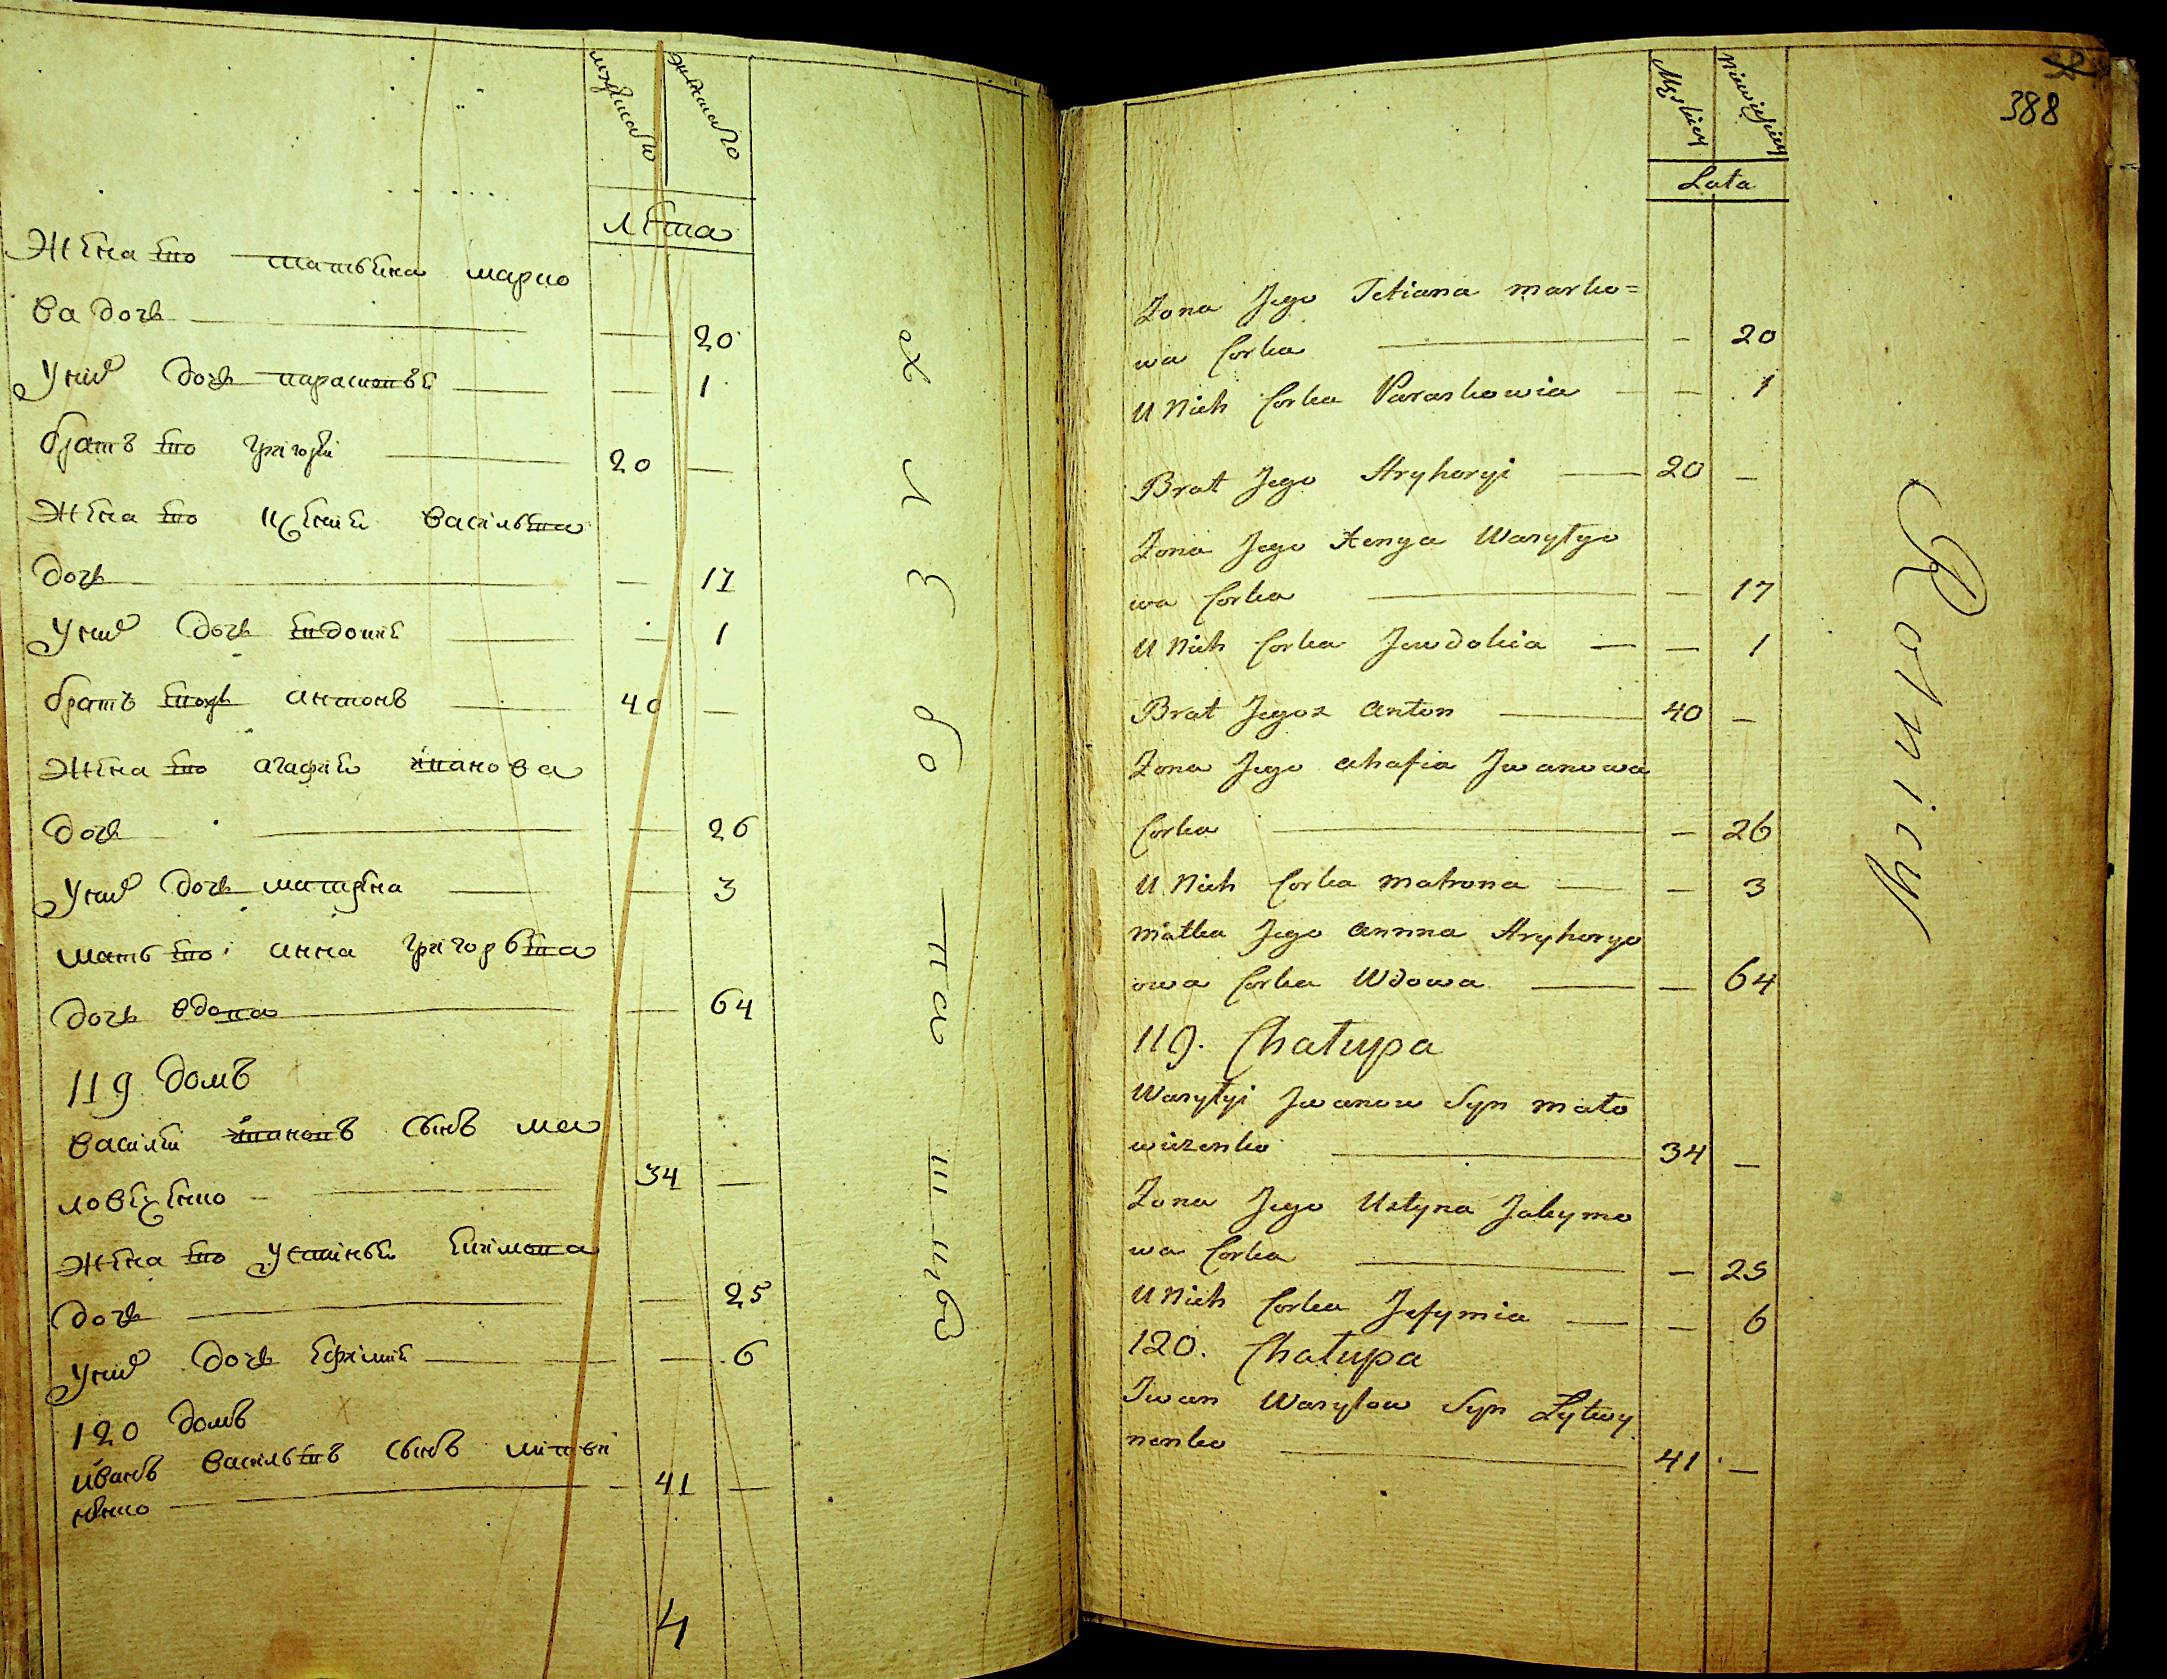 мужска женска
лѣта
Жена его татьѣна марко
ва дочь 20
У них дочь парасковѣя 1
братъ его григорѣй 20
Жена его ксения васильева
дочь 17
У них дочь евдокия 1
братъ егожъ антонъ 40
Жена его агафия иванова
дочь 26
У них дочь матрена 3
мать его анна григорьева
дочь вдова 64
119 домъ
василѣй ивановъ сынъ ма
ловеченко 34
Жена его устинья екимова
дочь 25
У них дочь ефимия 6
120 домъ
иванъ васильевъ сынъ литви
ненко 41
4
388
Męskiey Niewieściey
Lata
Żona Jego Tetiana marko=
wa Corka — 20
U Nich Corka Paraskowia — 1
Brat Jego Hryhoryi 20 —
Żona Jego Xenya Wasylyo
wa Corka — 17
U Nich Corka Jewdokia — 1
Brat Jegoz Anton 40 —
Żona Jego Ahafia Jwanowa
Corka — 26
U Nich Corka Matrona — 3
Matka Jego Annna Hryhoryo
owa Corka Wdowa — 64
119. Chałupa
Wasylyi Jwanow Syn Mało
wiczenko 34 —
Żona Jego Ustyna Jakymo
wa Corka — 25
U Nich Corka Jefymia — 6
120. Chałupa
Jwan Wasylow Syn Lytwy
nenko 41 —
Rolnicy